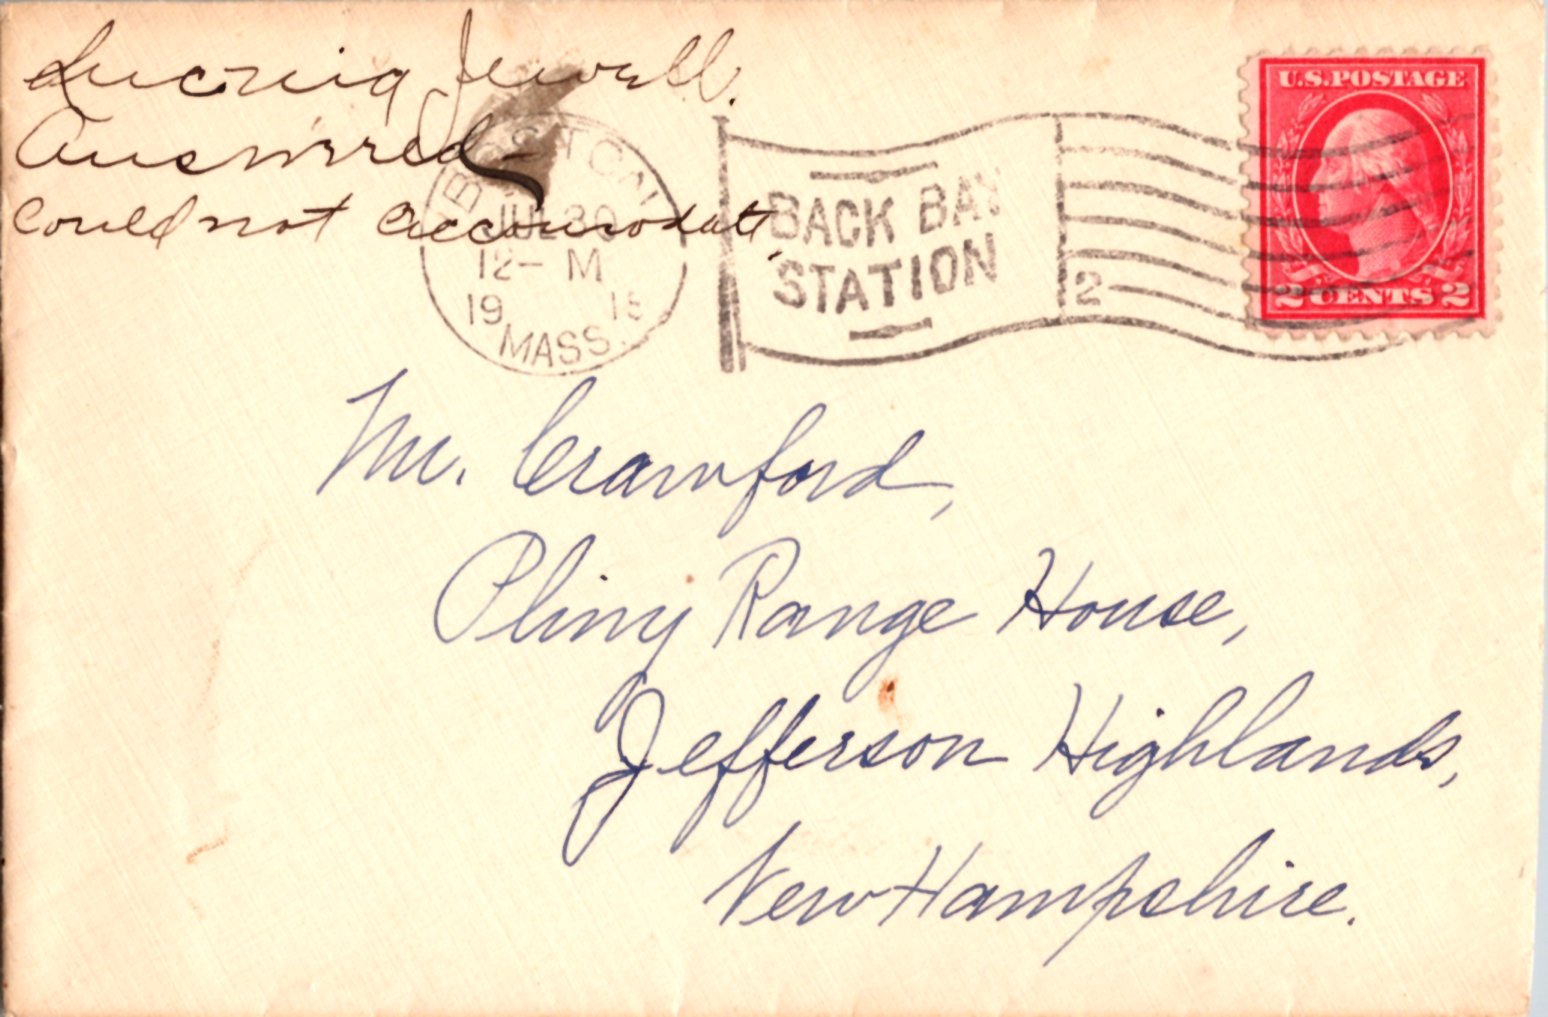 Lucenia Jewell.
Answered
Could not accomodate,
BOSTON
JUL 30
12- M
19 15
MASS.
BACK BAY
STATION
2
U.S. POSTAGE
2 CENTS 2
Mr. Crawford,
Pliny Range House,
Jefferson Highlands,
New Hampshire.